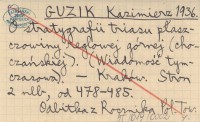 GUZIK Kazimierz 1936.
O stratygrafji triasu płasz-
czowiny reglowej górnej (cho-
czańskiej). (Wiadomość tym-
czasowa). — Kraków. Stron
2 nlb., od 478-485.
Odbitka z Rocznika P. Tow.